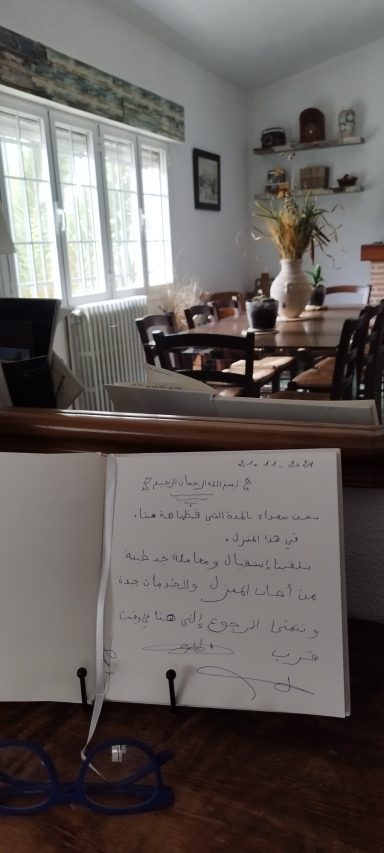 21-11-2024
بسم الله الرحمان الرحيم
نحن سعداء بالمدة التي قضيناها هنا،
في هذا المنزل.
تلقينا إستقبال ومعاملة جد طيبة
من أصحاب المنزل والخدمات جيدة
ونتمنى الرجوع إلى هنا في وقت
قرب